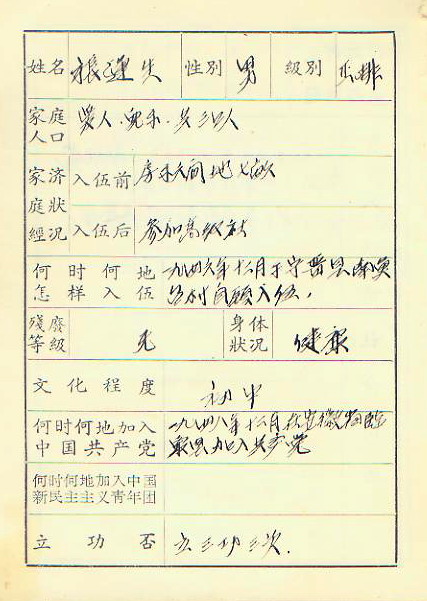 姓名 性別 男 級別 正排
家庭人口 愛人 兒子 共三口人
家庭經济狀況 入伍前 房子七间 地七畝
入伍后 参加高级社
何时何地怎样入伍 一九四六年十二月于
自願入伍,
殘廢等級 无 身体狀况 健康
文化程度 初中
何时何地加入中国共产党 一九四八年十二月在安徽
加入共产党
何时何地加入中国新民主主义青年团
立功否 立三功三次.